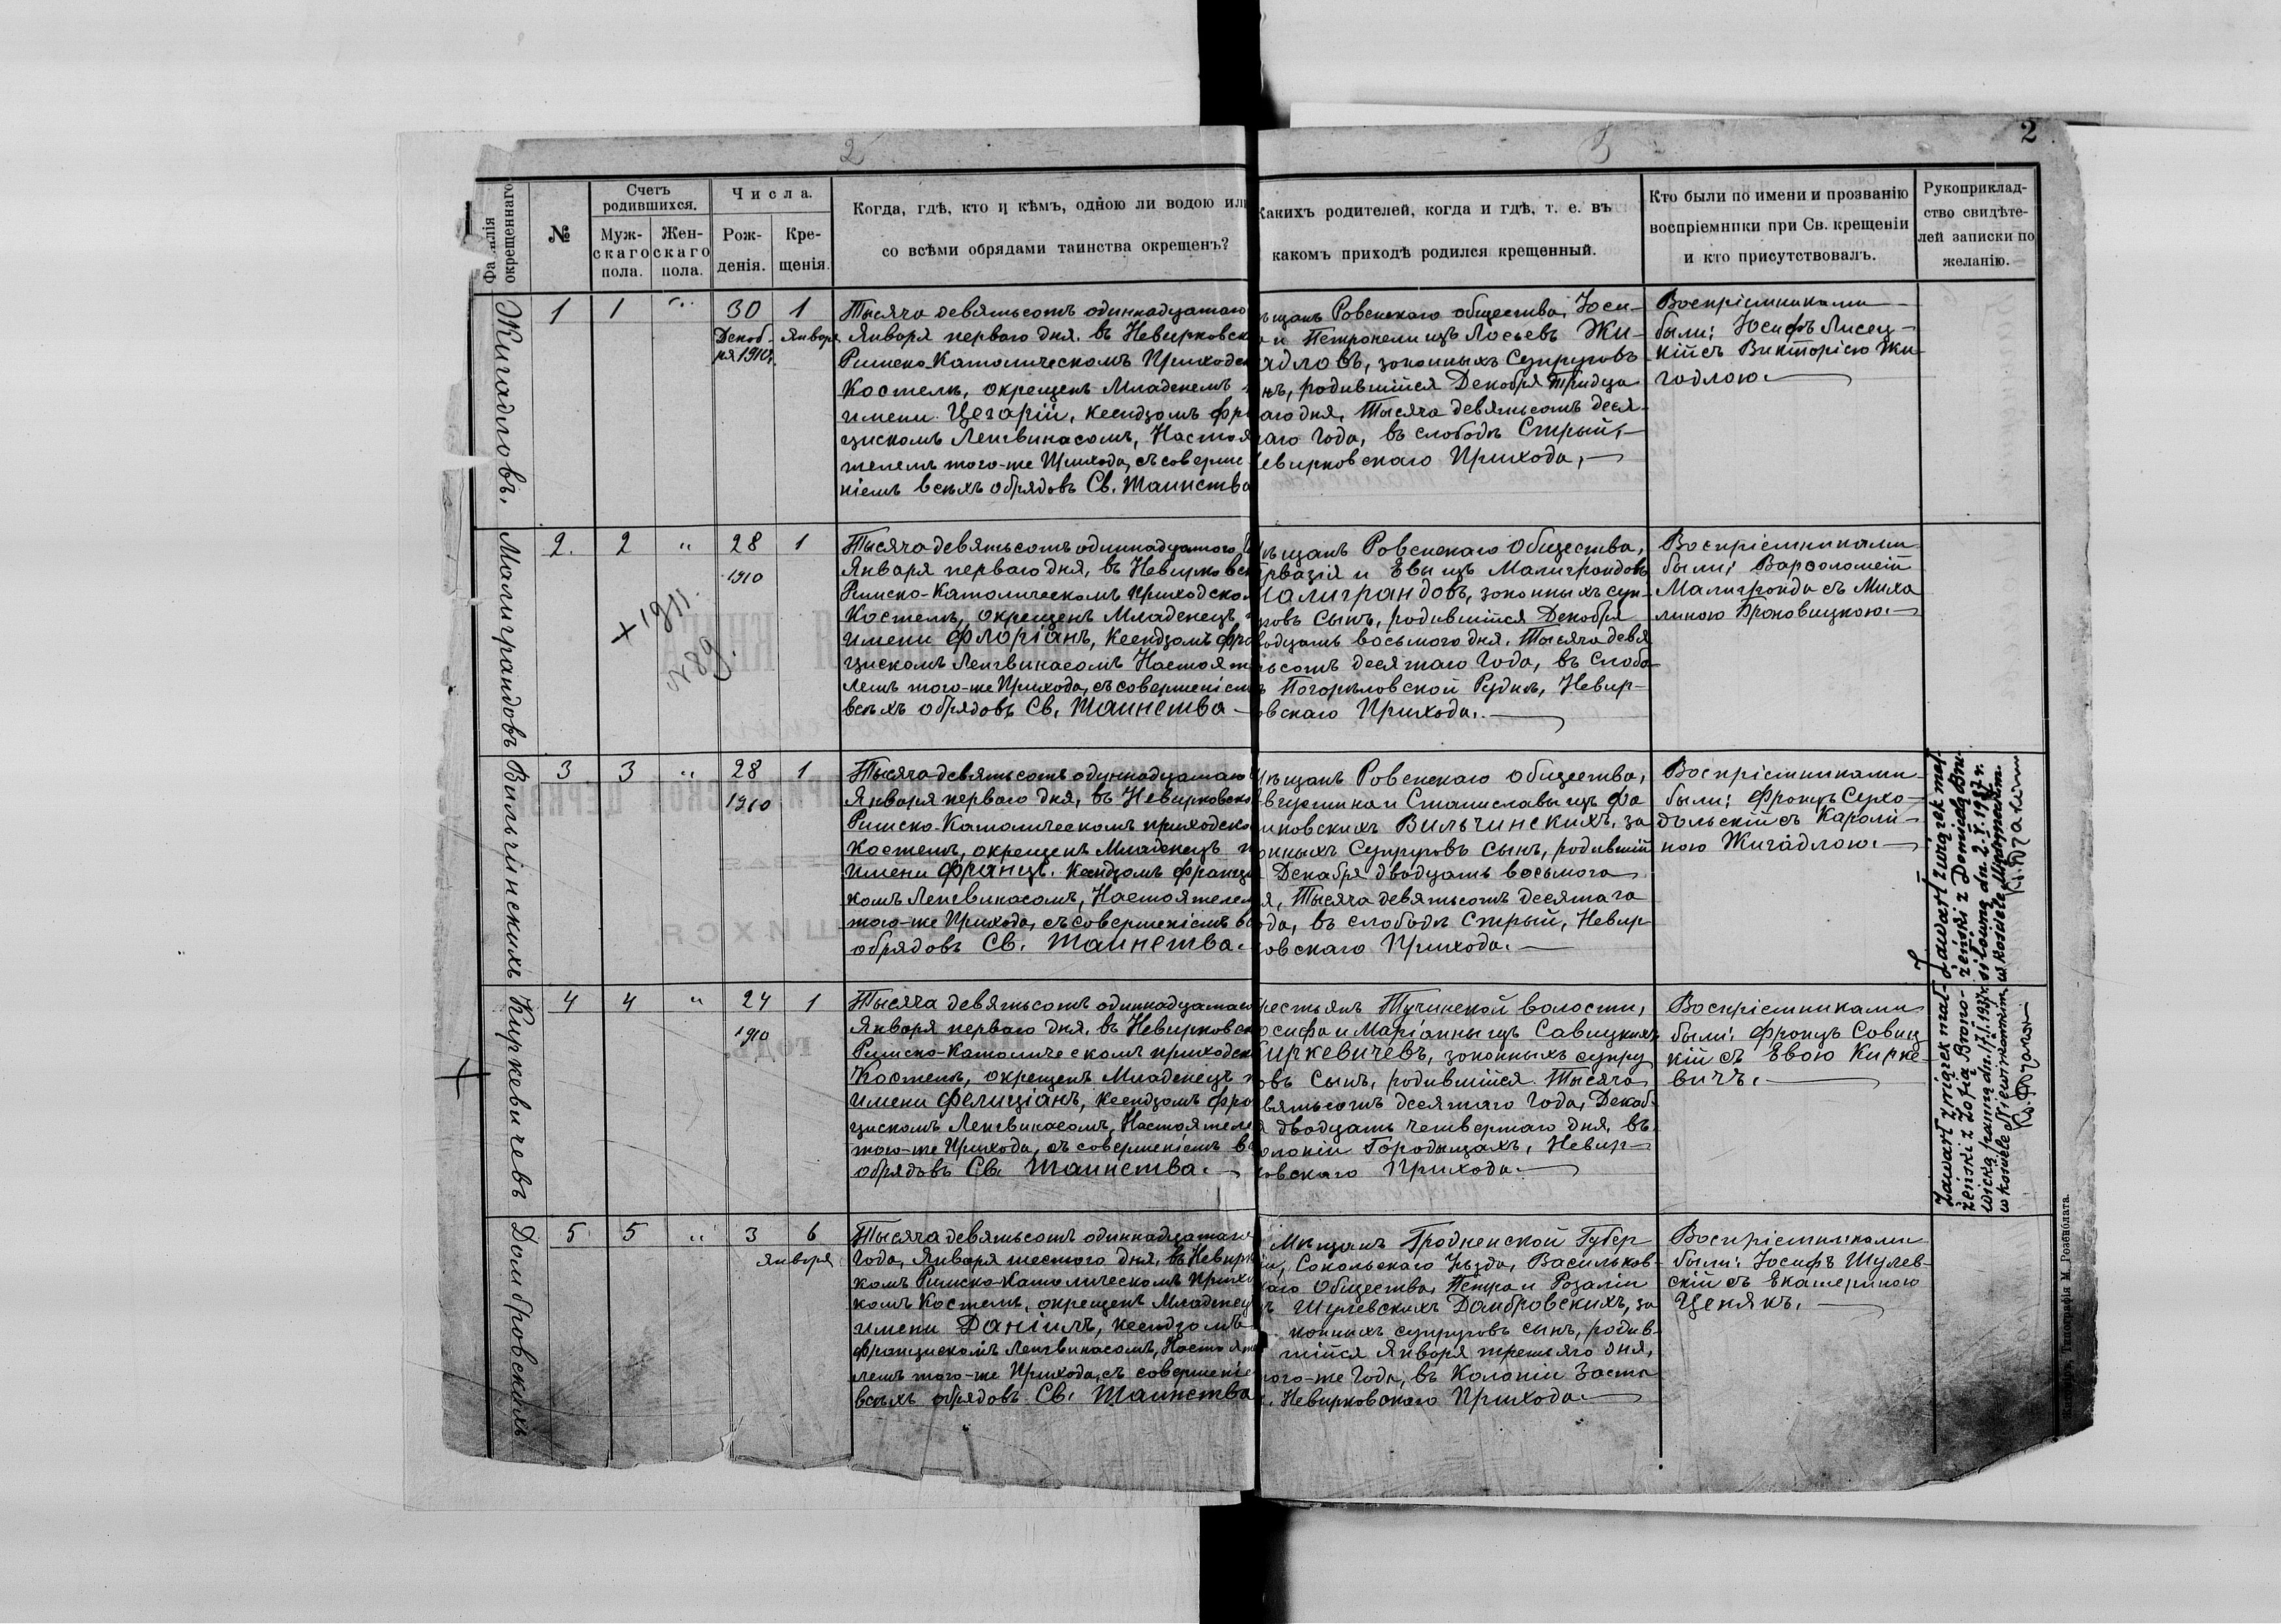 2
3
2
Фамилія
окрещеннаго
№
Счетъ
родившихся.
Муж-
скаго
пола.
Жен-
скаго
пола.
Числа.
Рож-
денія.
Кре-
щенія.
Когда, гдѣ, кто и кѣмъ, одною ли водою или
со всѣми обрядами таинства окрещенъ?
Какихъ родителей, когда и гдѣ, т. е. въ
какомъ приходѣ родился крещенный.
Кто были по имени и прозванію
воспріемники при Св. крещеніи
и кто присутствовалъ.
Рукоприклад-
ство свидѣте-
лей записки по
желанію.
Жигадловъ.
1
1
"
30
Декаб-
ря 1910г.
1
Января
Тысяча девятьсотъ одиннадцатаго
Января перваго дня, въ Невирковск
Римско-Католическомъ Приходск
Костелѣ, окрещенъ Младенецъ
имени Цезарій, Ксендзомъ Фра
цискомъ Ленгвинасомъ, Настоя
телемъ того-же Прихода, съ соверше
ніемъ всѣхъ обрядовъ Св. Таинства
ѣщанъ Ровенскаго общества, Іоси-
а и Петронели изъ Лосьевъ Жи-
адловъ, законныхъ Супруговъ
нъ, родившійся Декабря Тридца
аго дня, Тысяча девятьсотъ деся-
таго Года, въ слободѣ Стрый,
Невирковскаго Прихода,
Воспріемниками
были: Іосифъ Лисец-
кій съ Викторіею Жи-
гадлою.
Малиграндовъ
2.
2
"
28
1910
1
+ 1911
№ 89.
Тысяча девятьсотъ одиннадцатаго Г
Января перваго дня, въ Невирковск
Римско-Католическомъ Приходско
Костелѣ, окрещенъ Младенецъ,
имени Флоріанъ, Ксендзомъ Фра
цискомъ Ленгвинасомъ Настояте
лемъ того-же Прихода, съ совершеніем
всѣхъ обрядовъ Св. Таинства
ѣщанъ Ровенскаго Общества,
рвазія и Евы изъ Малиграндовъ
Малиграндовъ, законныхъ суп-
говъ Сынъ, родившійся Декабря
вадцать восьмого дня, Тысяча девя
тьсотъ десятаго Года, въ Слобо
ѣ Погорѣловской Руднѣ, Невир-
овскаго Прихода.
Воспріемниками
были: Варфоломей
Малигранда съ Миха
линою Броновицкою.
Вильчинскихъ
3
3
"
28
1910
1
Тысяча девятьсотъ одиннадцатаго
Января перваго дня, въ Невирковско
Римско-Католическомъ приходско
Костелѣ, окрещенъ Младенецъ п
имени Францъ, Ксендзомъ Франци
комъ Ленгвинасомъ, Настоятелем
того-же Прихода, съ совершеніемъ вс
обрядовъ Св. Таинства.
ѣщанъ Ровенскаго Общества,
вгустина и Станиславы изъ Фа
иковскихъ Вильчинскихъ, за
онныхъ Супруговъ Сынъ, родившій
Декабря двадцать восьмого
я, Тысяча девятьсотъ десятаго
ода, въ слободѣ Стрый, Невир
овскаго Прихода.
Воспріемниками
были: Францъ Сухо-
дольскій съ Кароли-
ною Жигадлою.
Zawarł związek mał-
żeński z Domicelą
dn. 2.X.1937 r.
w kościele
Киркевичевъ
4
4
"
24
1910
1
Тысяча девятьсотъ одиннадцатаго
Января перваго дня, въ Невирковск
Римско-Католическомъ приходск
Костелѣ, окрещенъ Младенецъ п
имени Фелиціанъ, Ксендзомъ Фра
цискомъ Ленгвинасомъ, Настоятеле
того-же Прихода, съ совершеніемъ вс
обрядовъ Св. Таинства.
рестьянъ Тучинской волости,
осифа и Маріанны изъ Савицкихъ
Киркевичевъ, законныхъ супру
овъ Сынъ, родившійся Тысяча
вятьсотъ десятаго Года, Декаб-
я двадцать четвертаго дня, въ
олоніи Городыщахъ, Невир-
овскаго Прихода.
Воспріемниками
были: Францъ Савиц
кій съ Евою Кирке-
вичъ.
Zawarł związek mał-
żeński z Zofią Brono-
wicką panną
w kościele Niewirkowskim
Домбровскихъ
5
5
"
3
6
января
Тысяча девятьсотъ одиннадцатаго
Года, Января шестого дня, въ Невирк
комъ Римско-Католическомъ Прихо
комъ Костелѣ, окрещенъ Младенец
имени Даніилъ, Ксендзомъ
Францискомъ Ленгвинасомъ, Настояте
лемъ того-же Прихода, съ совершеніе
всѣхъ обрядовъ Св. Таинства
Мѣщанъ Гродненской Губер
іи, Сокольскаго Уѣзда, Васильков-
каго Общества, Петра и Розаліи
ъ Шулевскихъ Домбровскихъ, за
конныхъ супруговъ сынъ, родив-
шійся Января третьяго дня,
того-же Года, въ Колоніи Заста
. Невирковскаго Прихода.
Воспріемниками
были: Іосифъ Шулев-
скій съ Екатериною
Ценякъ.
Типографія М. Розенблата.